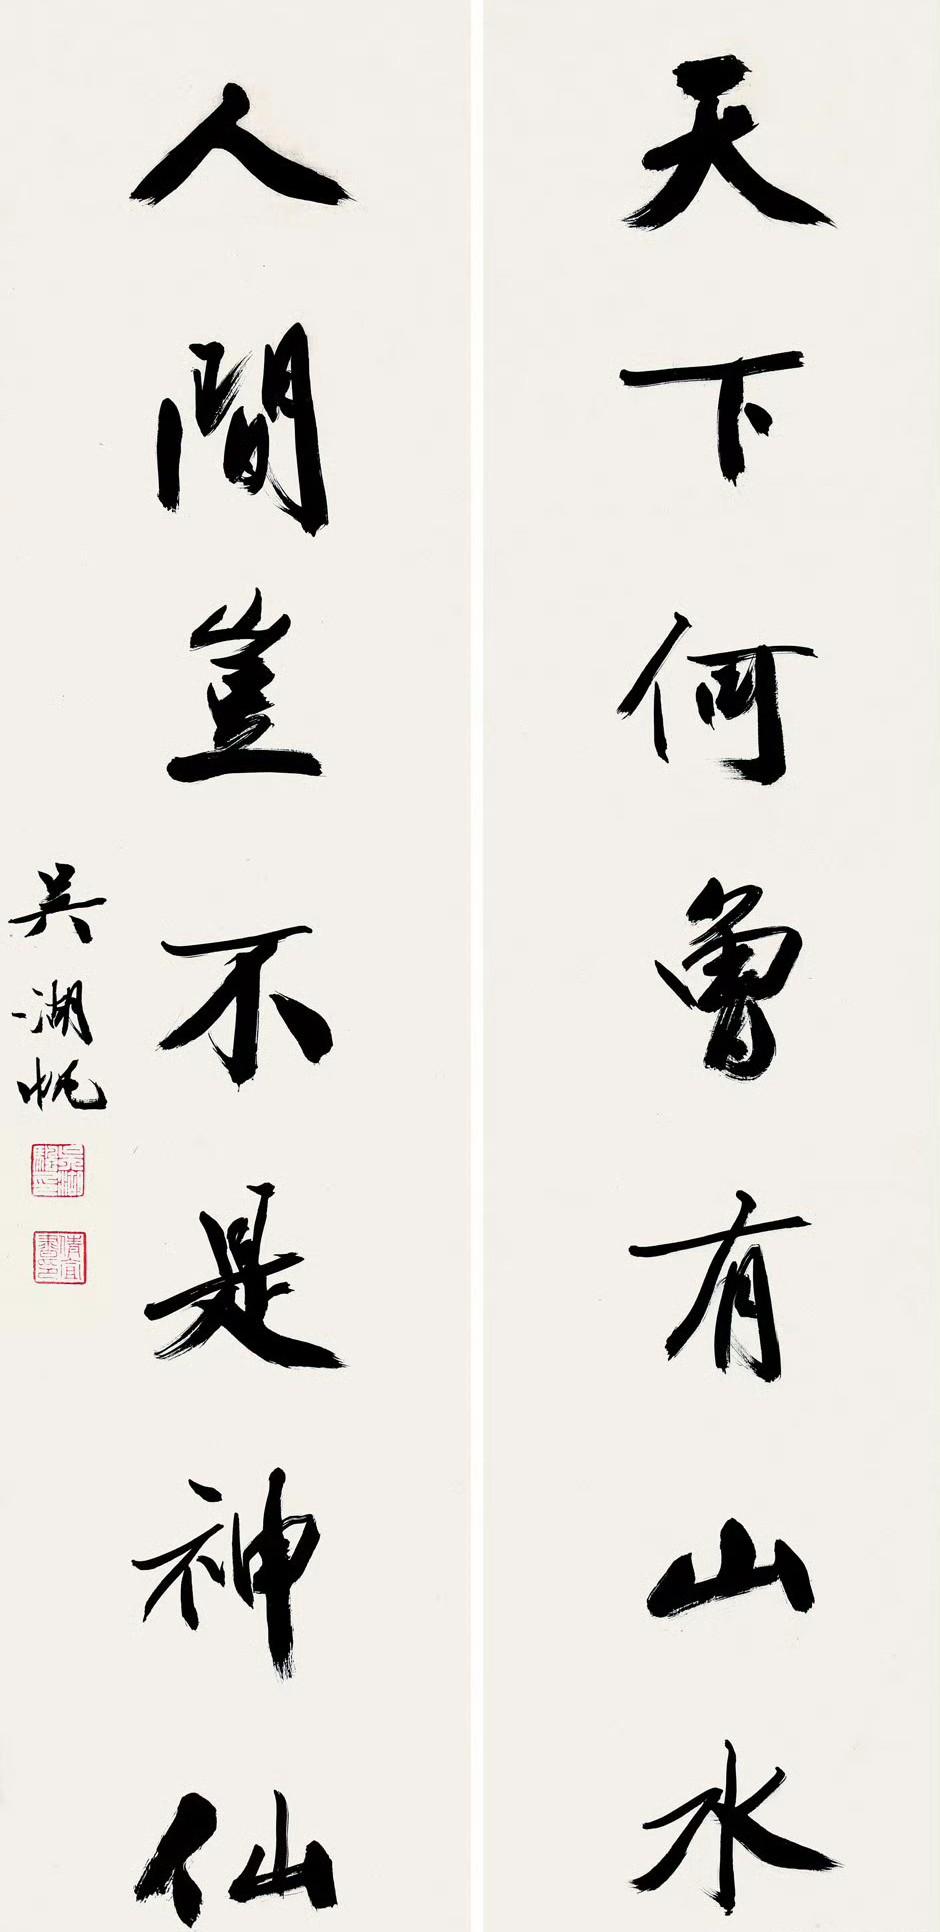 天下何曾有山水
人間豈不是神仙
吳湖帆